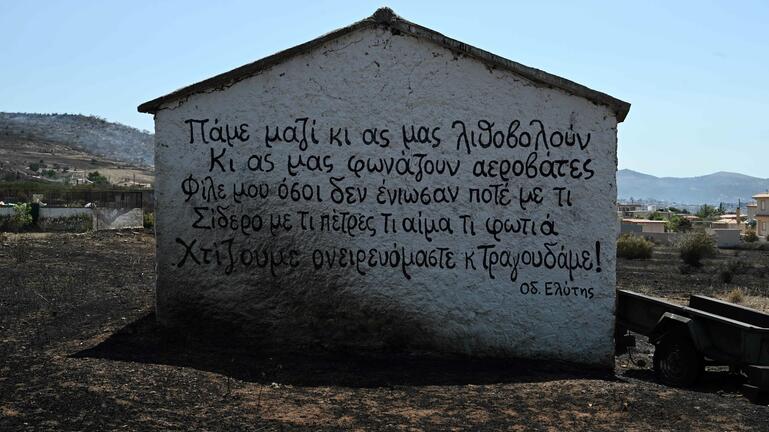 Πάμε μαζί κι ας μας λιθοβολούν
Κι ας μας φωνάζουν αεροβάτες
Φίλε μου όσοι δεν ένιωσαν ποτέ με τι
Σίδερο με τι πέτρες τι αίμα τι φωτιά
Χτίζουμε ονειρευόμαστε κ Τραγουδάμε!
Οδ. Ελύτης